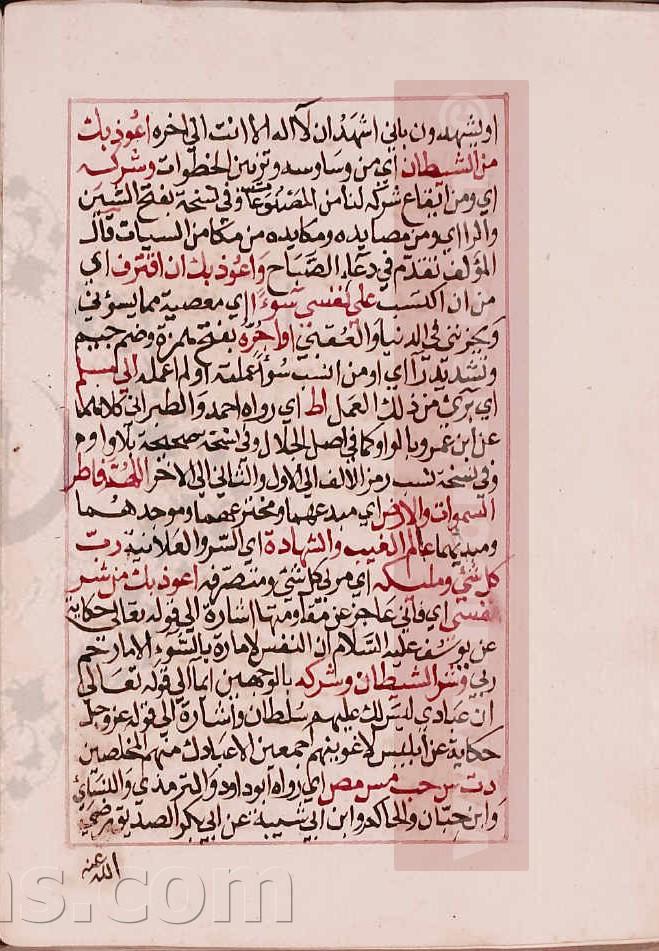 او يشهدون باني اشهد ان لا اله الا انت الى اخره اعوذ بك
من الشيطان اي من وساوسه وتزيين الخطوات وشركه
اي ومن ايقاع شركه لنا من المصنوعا وفي نسخة بفتح الشين
والراي ومن مصايده ومكايده من مكامن السيات قال
المؤلف تقدم في دعاء الصباح واعوذ بك ان اقترف اي
من ان اكتسب على نفسي سوءا اي معصية مما يسؤني
ويحزنني في الدنيا والعقبى او اجره بفتح همزة وضم جيم
وتشديد را اي او من انسب سوءا عملته او لم اعمله الى مسلم
اي بريء من ذلك العمل اط اي رواه احمد والطبراني كلاهما
عن ابن عمرو بالواو كما في اصل الجلال وفي نسخة صحيحة بلا واو
وفي نسخة نسب رمز الالف الى الاول والثاني الى الاخر اللهم فاطر
السموات والارض اي مبدعهما ومخترعهما وموجدهما
ومبديهما عالم الغيب والشهادة اي السر والعلانية رب
كل شيئ ومليكه اي مربي كل شئ ومتصرفه اعوذ بك من شر
نفسي اي فاني عاجز عن مقاومتها اشارة الى قوله تعالى حكاية
عن يوسف عليه السلام ان النفس لامارة بالسوء الا مارحم
ربي وشر الشيطان وشركه بالوجهين ايما الى قوله تعالى
ان عبادي ليس لك عليهم سلطان واشارة الى قوله عز وجل
حكاية عن ابليس لاغوينهم اجمعين الا عبادك منهم المخلصين
دت س حب مس مص اي رواه ابو داود والترمذي والنسائي
وابن حبان والحاكم وابن ابي شيبة عن ابي بكر الصديق رضي
الله عنه
ns.com